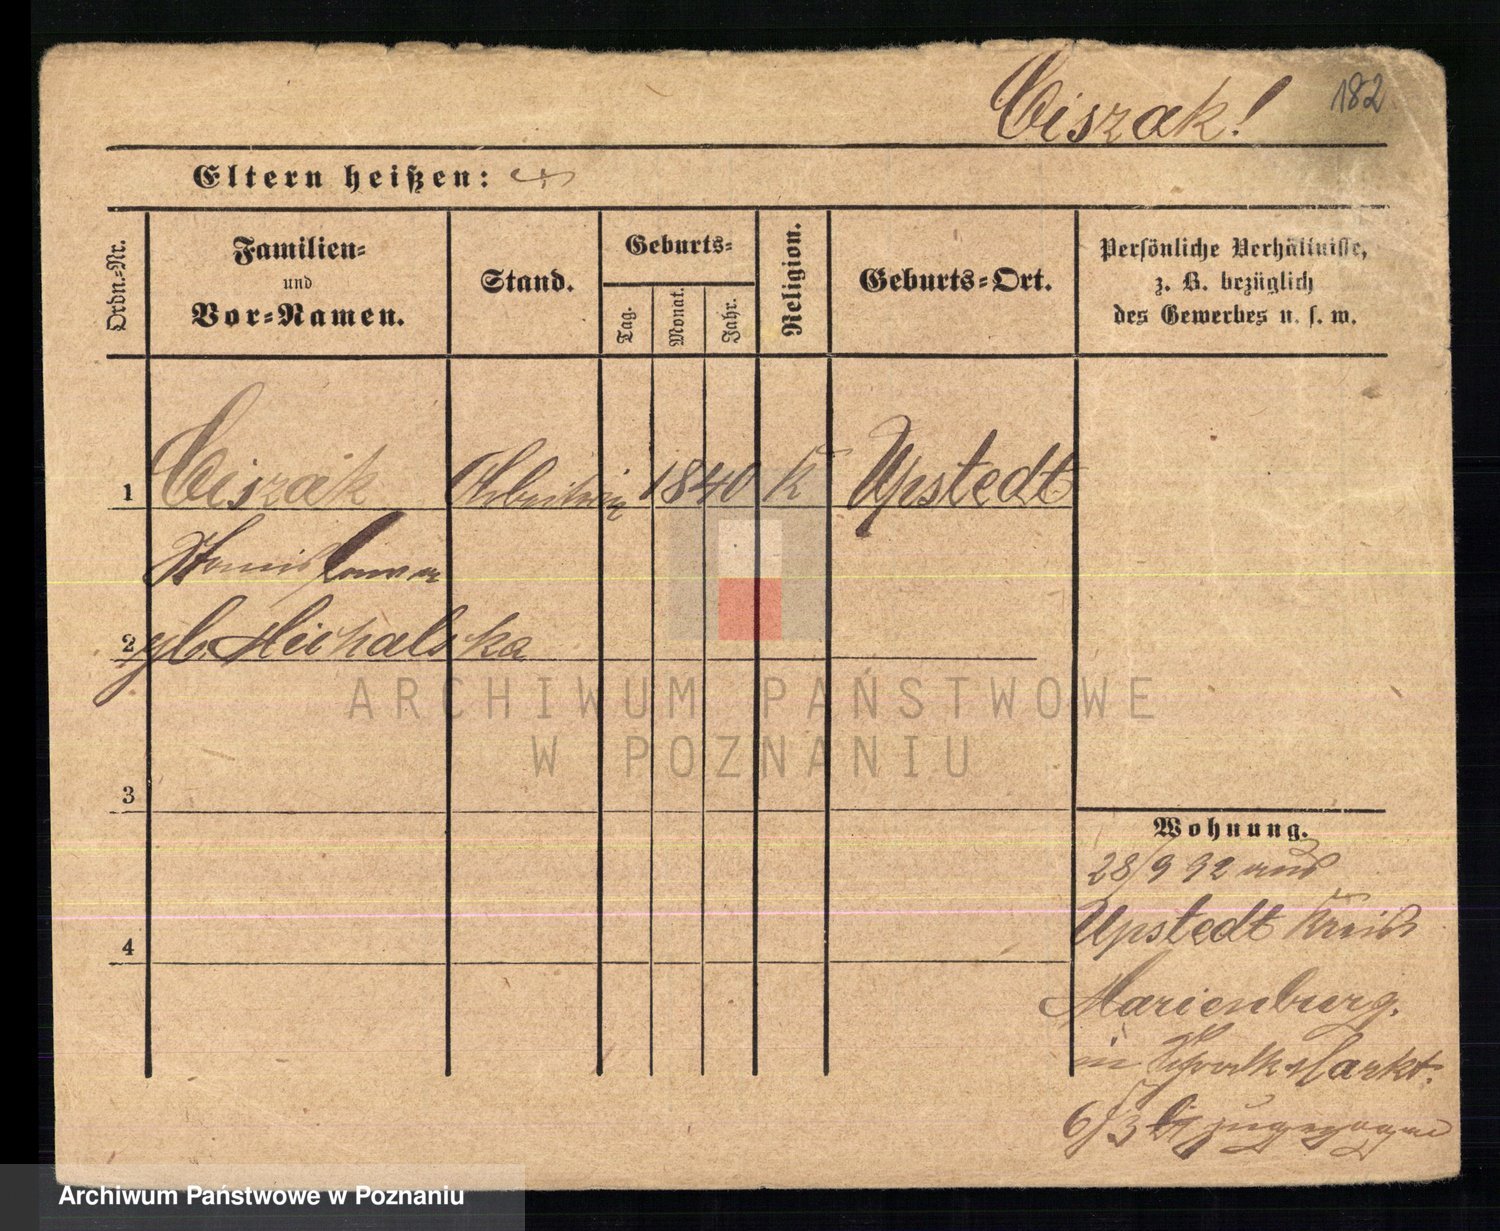 Ciszak! 182
Eltern heißen:
Ordn.-Nr.
Familien-
und
Vor-Namen.
Stand.
Geburts-
Tag.
Monat.
Jahr.
Religion.
Geburts-Ort.
Persönliche Verhältnisse,
z. B. bezüglich
des Gewerbes u. s. w.
1 Ciszak Arbeiterin 1840 K Upstedt
Stanislawa
2 gb. Michalska
ARCHIWUM PAŃSTWOWE
W POZNANIU
3
Wohnung.
28/9 92 aus
Upstedt Kreis
4
Marienburg.
in
6/3 zugezogen
Archiwum Państwowe w Poznaniu